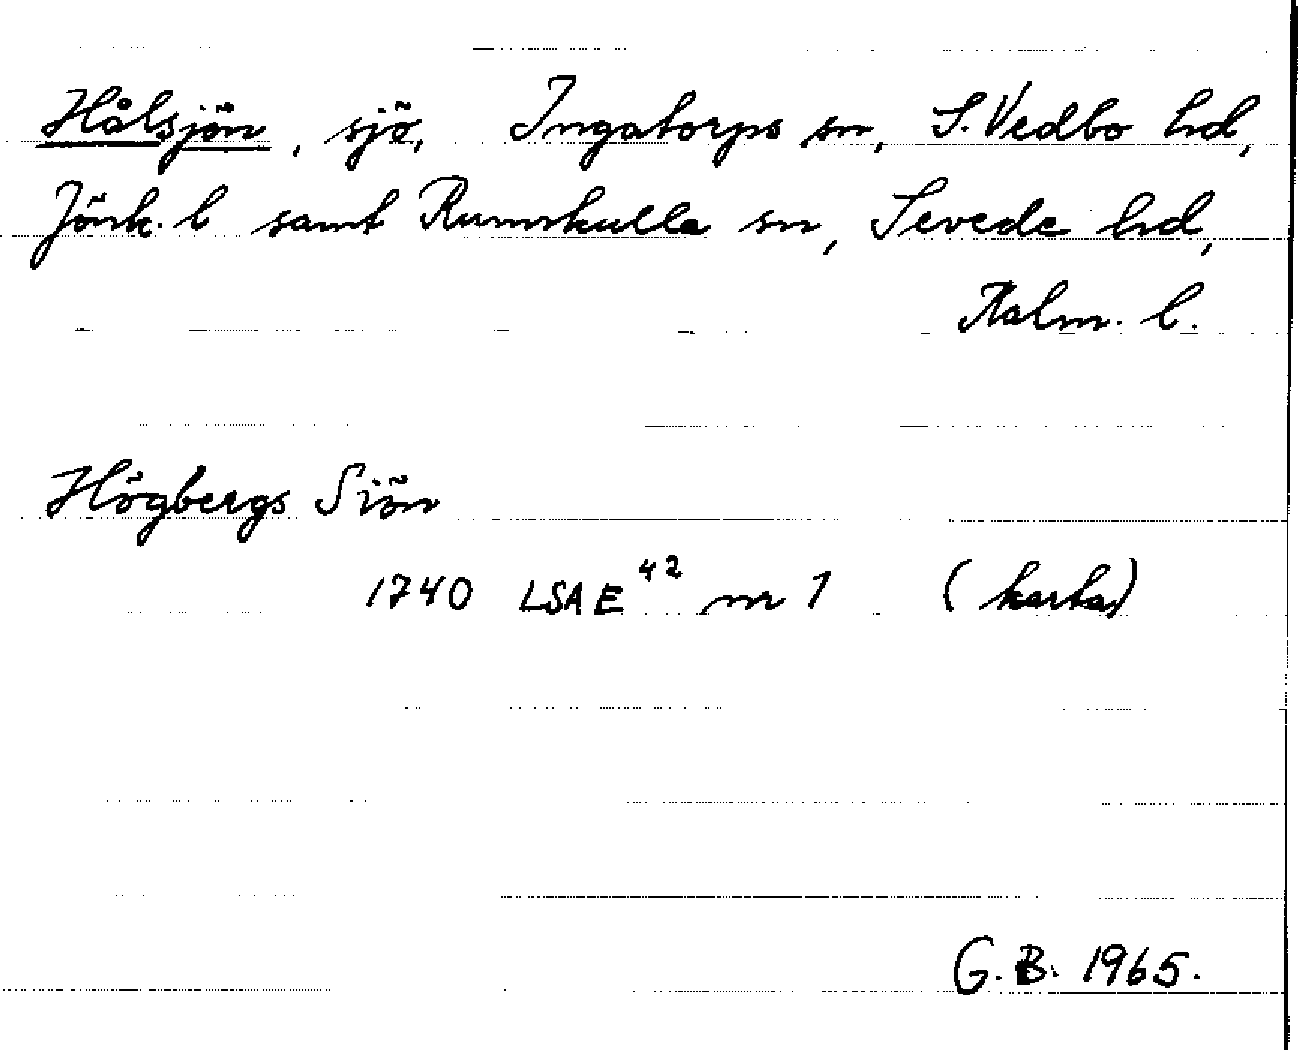 Hålsjön, sjö, Ingatorps sn, S. Vedbo hd,
Jönk. l samt Rumskulla sn, Sevede hd,
Kalm. l.
Högbergs Siön
1740 LSA E⁴² nr 1 (karta)
G. B. 1965.